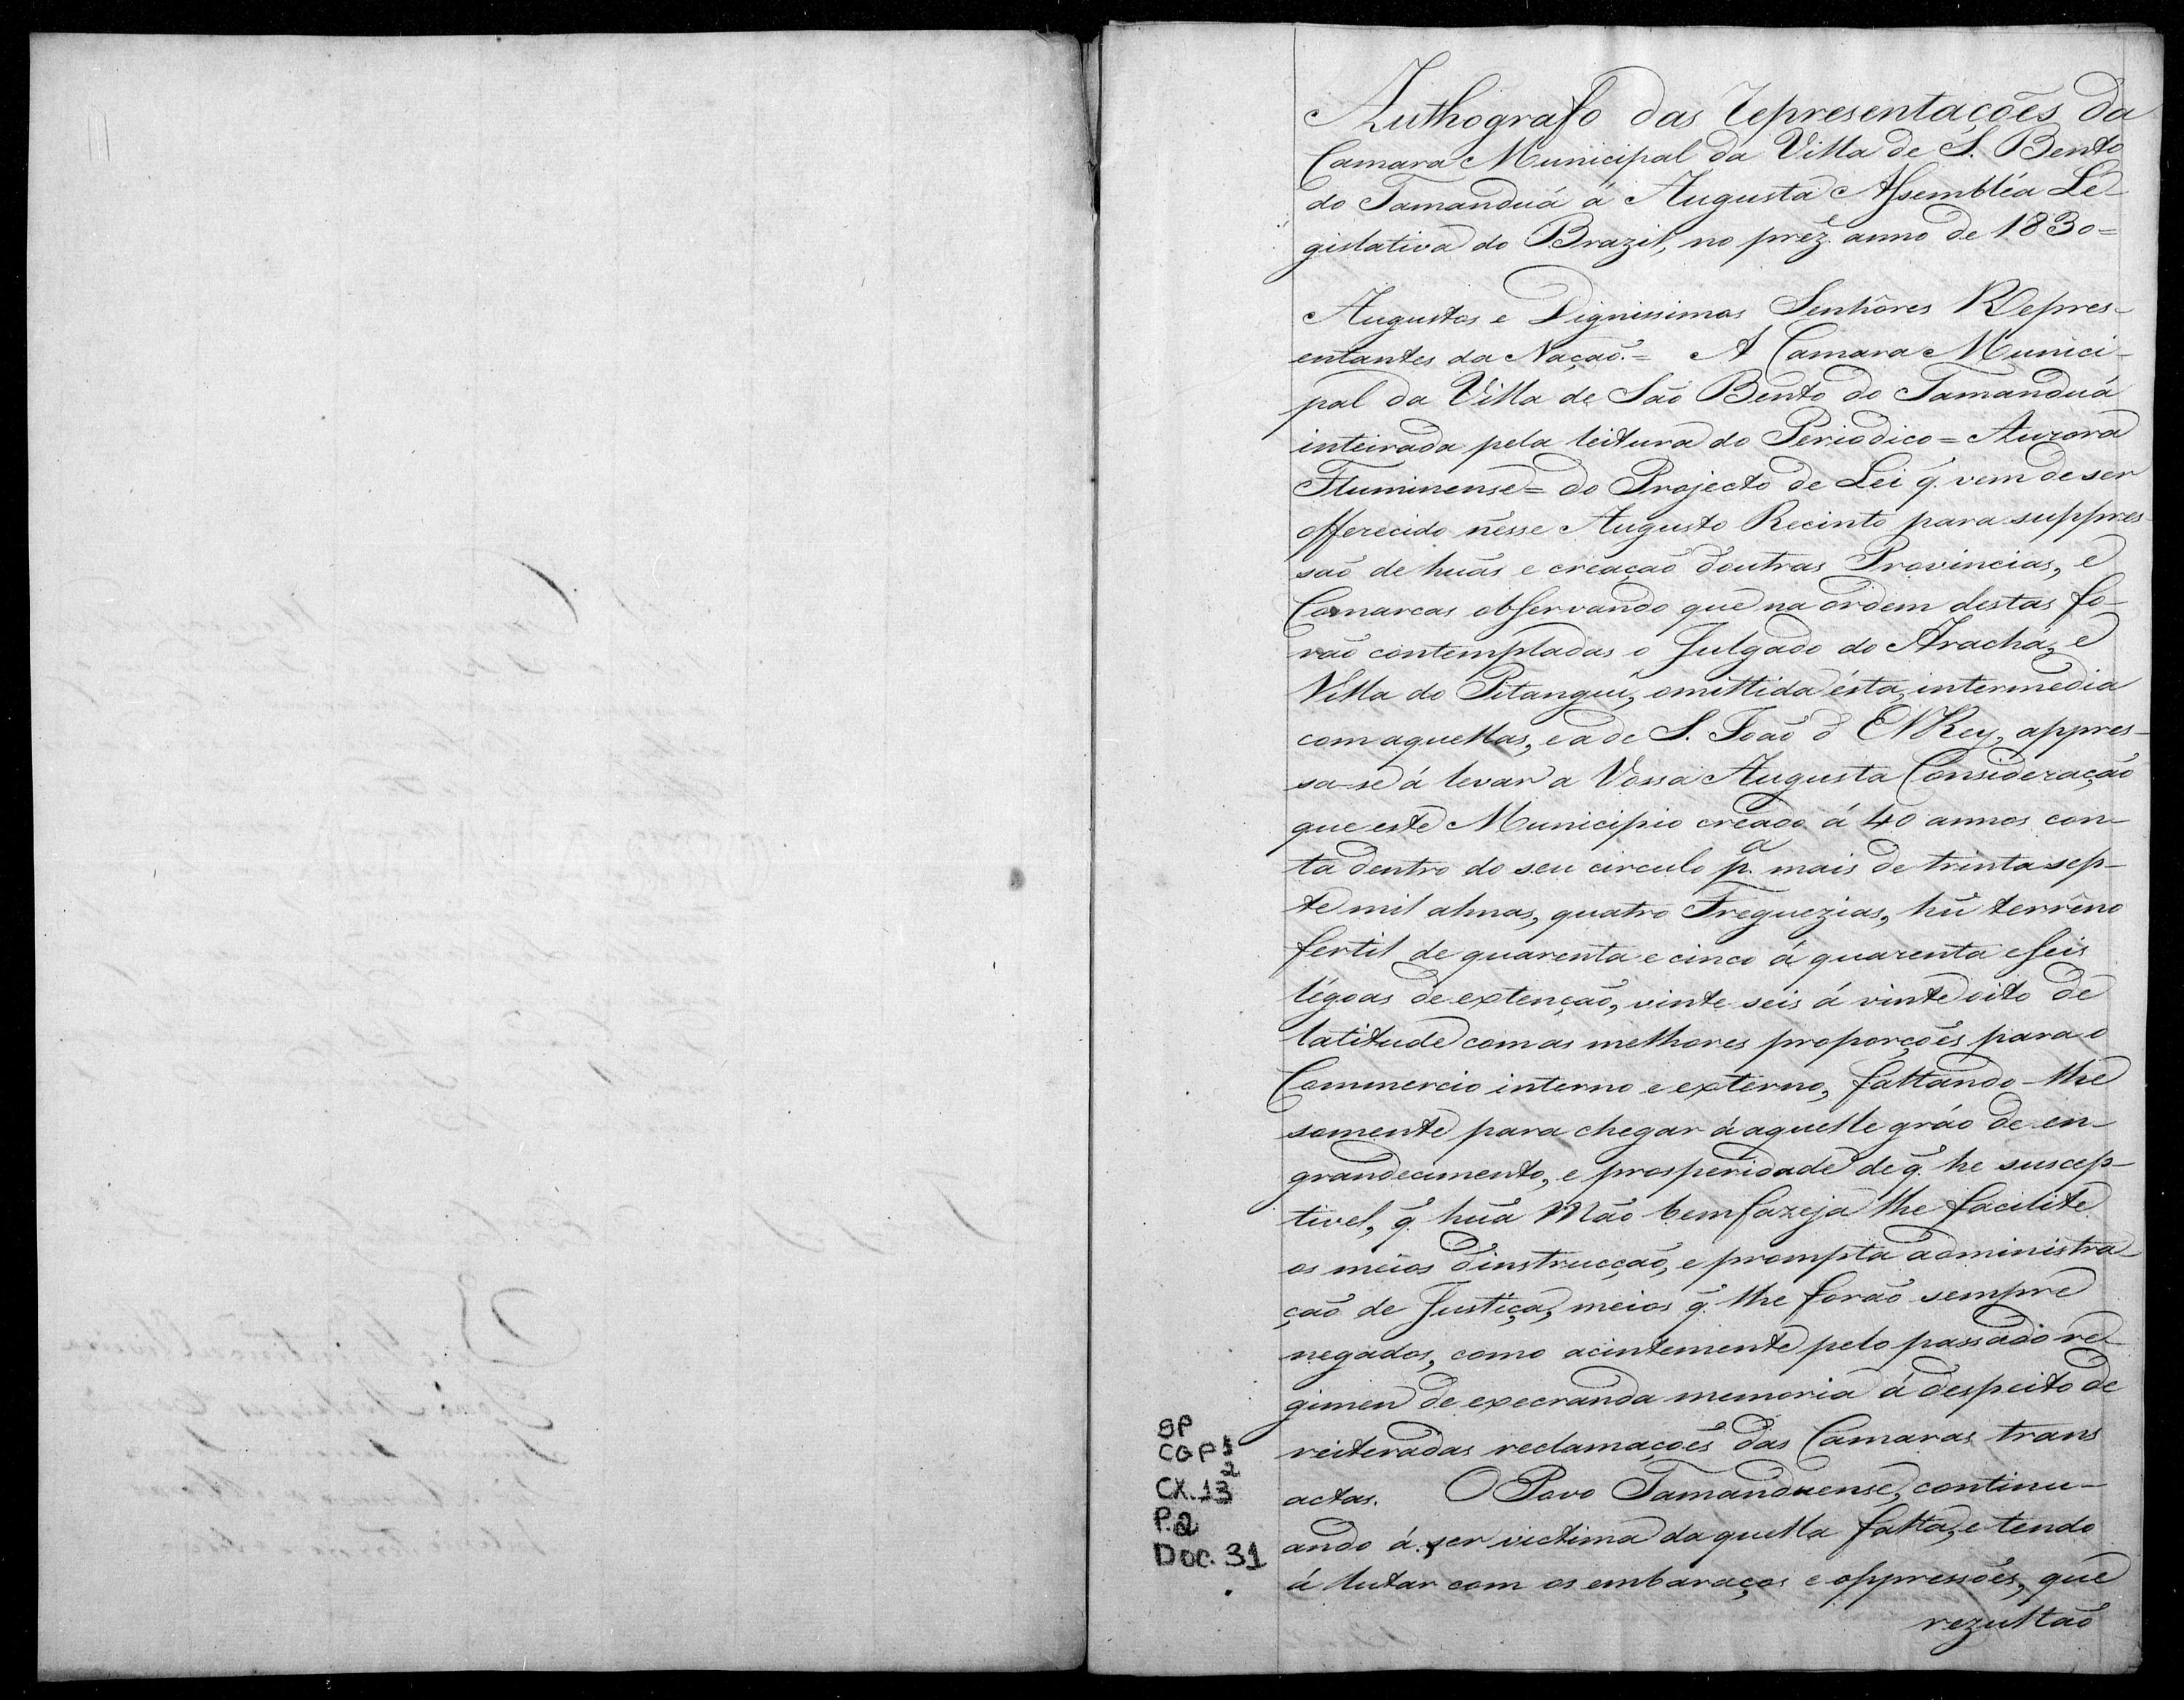 Authografo das representações da
Camara Municipal da Villa de S. Bento
do Tamanduá á Augusta Assembléa Le-
gislativa do Brazil, no prez.e anno de 1830=
Augustos e Dignissimos Senhôres Repres-
entantes da Nação.= A Camara Munici-
pal da Villa de São Bento do Tamanduá
inteirada pela leitura do Periodico = Aurora
Fluminense= do Projecto de Lei q̃ vem de ser
offerecido nêsse Augusto Recinto para suppres-
são de huãs e creação d'outras Provincias, e
Comarcas observando que na órdem destas fo-
rão contempladas o Julgado do Arachá, e
Villa do Pitanguí, omittida ésta, intermedia
com aquellas, e a de S. João d'ElRey, appres-
sa-se á levar a Vossa Augusta Consideração
que este Municipio creado á 40 annos con-
ta dentro do seu circulo p.a mais de trinta sep-
te mil almas, quatro Freguezias, hũ terrêno
fertil de quarenta e cinco á quarenta e seis
légoas de extenção, vinte seis á vinte oito de
latitude com as melhores proporções para o
Commercio interno e externo, faltando-lhe
somente para chegar á aquelle gráo de en-
grandecimento, e prosperidade de q̃ he suscep-
tivel, q̃ huã Mão bemfazeja lhe facilite
os meios d'instrucção, e prompta administra-
ção de Justiça, meios q̃ lhe forão sempre
negados, como acintemente pelo passado re-
gimen de execranda memoria á despeito de
reiteradas reclamações das Camaras trans
actas. O Povo Tamanduense, continu-
ando á ser victima daquella falta, e tendo
á lutar com os embaraços e oppressões, que
rezultão
SP
CGP 5
CX. 13 2
P.2
Doc. 31